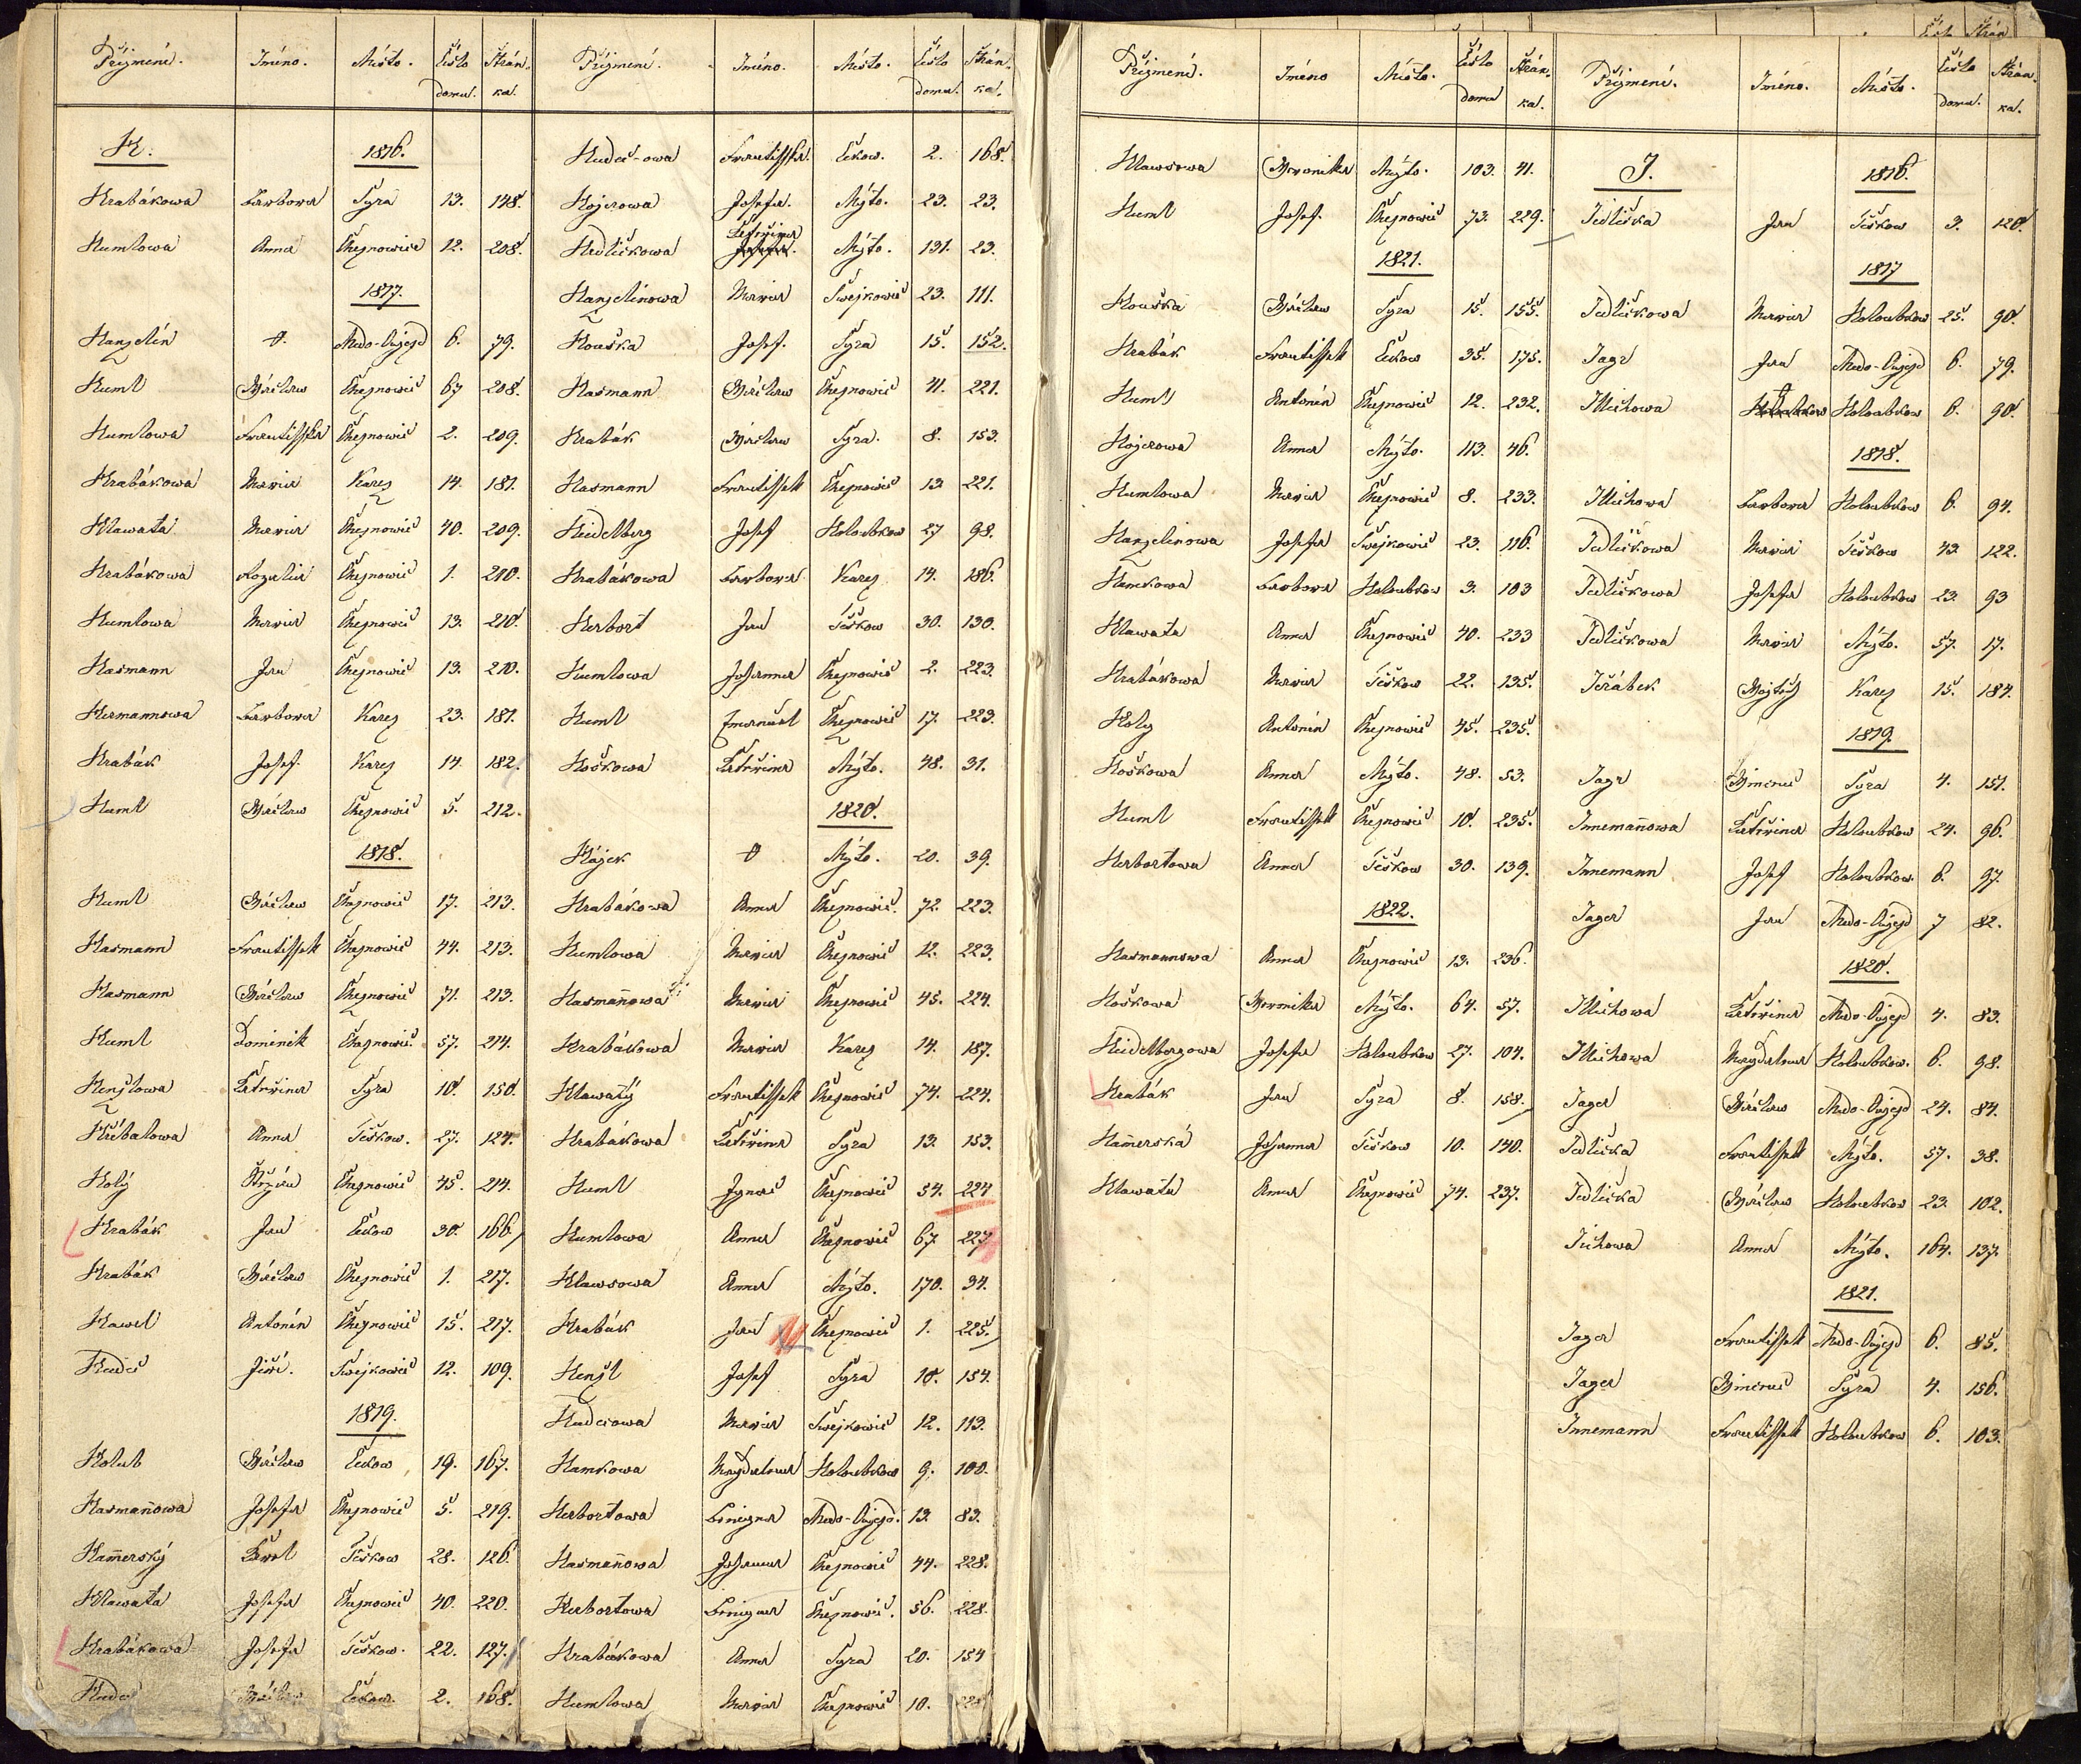 Příjmení. Jméno. Místo. Číslo domu. Strán-ka.
H. 1816.
Hrabákowa Barbora Syra 13. 148.
Humlowa Anna Cheznowice 12. 208.
1817.
Hanzelín O. Medo-Oujezd 6. 79.
Huml Wáclaw Cheznowic 67 208.
Humlowa Frantisska Cheznowic 2. 209.
Hrabákowa Maria Karez 14. 181.
Hlawatá Maria Cheznowic 40. 209.
Hrabákowa Rozalia Cheznowic 1. 210.
Humlowa Maria Cheznowic 13. 210.
Hasmann Jan Cheznowic 13. 210.
Hermannowa Barbora Karez 23. 181.
Hrabák Josef Karez 14. 182.
Huml Wáclaw Cheznowic 5. 212.
1818.
Huml Wáclaw Cheznowic 17. 213.
Hasmann Frantissek Cheznowic 44. 213.
Hasmann Wáclaw Cheznowic 71. 213.
Huml Dominik Cheznowic 57. 214.
Henzlowa Kateřina Syra 10. 150.
Hříbalowa Anna Těškow. 27. 124.
Holý Cheznowic 45. 214.
Hrabák Jan Čekow 30. 166.
Hrabák Wáclaw Cheznowic 1. 217.
Hawel Antonín Cheznowic 15. 217.
Hudec Jiří. Swejkowic 12. 109.
1819.
Holub Wáclaw Čekow 19. 167.
Hasmaňowa Josefa Cheznowic 5. 219.
Hamerský Karel Těškow 28. 126.
Hlawata Josefa Cheznowic 40. 220.
Hrabákowa Josefa Těškow. 22. 127.
Hudec Wáclaw Čekow. 2. 168.
Příjmení. Jméno. Místo. Číslo domu. Strán-ka.
Hudeč-owa Frantisska. Čekow. 2. 168.
Hojerowa Josefa. Mýto. 23. 23.
Hedličkowa Kateřina Josefa. Mýto. 131. 23.
Hanzelínowa Maria Swejkowic 23. 111.
Houška Josef. Syra 15. 152.
Hasmann Wáclaw Cheznowic 41. 221.
Hrabák Wáclaw Syra. 8. 153.
Hasmann Frantissek Cheznowic 13 221.
Heidelberg Josef Holoubkow 27 98.
Hrabákowa Barbora Karez 14. 186.
Herbort Jan Těškow 30. 130.
Humlowa Johanna Cheznowic 2. 223.
Huml Emanuel Cheznowic 17. 223.
Hoškowa Kateřina Mýto. 48. 31.
1820.
Hájek O Mýto. 20. 39.
Hrabákowa Anna Cheznowic. 72. 223.
Humlowa Maria Cheznowic 12. 223.
Hasmaňowa Maria Cheznowic 45. 224.
Hrabákowa Maria Karez 14. 187.
Hlawatý Frantissek Cheznowic 74. 224.
Hrabákowa Kateřina Syra 13. 153.
Huml Ignac Cheznowic 54. 224
Humlowa Anna Cheznowic 67. 227
Hlawsowa Anna Mýto. 170. 34.
Hrabák Jan Cheznowic 1. 225.
Henzl Josef Syra 10. 154.
Hudcowa Maria Swejkowic 12. 113.
Hamkowa Magdalena Holoubkow 9. 100.
Herbortowa Medo-Oujezd. 13. 83.
Hasmaňowa Johanna Cheznowic 44. 228.
Herbortowa Cheznowic. 56. 228.
Hrabákowa Anna Syra 20. 154
Humlowa Maria Cheznowic 10.
Příjmení. Jméno Místo. Číslo domu Strán-ka.
Hlawsowa Weronika Mýto. 103. 41.
Huml Josef. Cheznowic 73. 229.
1821.
Houška Wáclaw Syra 15. 155.
Hrabák Frantissek Čekow 35. 175.
Huml Antonín Cheznowic 12. 232.
Hojerowa Anna Mýto. 113. 46.
Humlowa Maria Cheznowic 8. 233.
Hanzelinowa Josefa Swejkowic 23. 116.
Hamkowa Barbora Holoubkow 3. 103
Hlawata Anna Cheznowic 40. 233
Hrabákowa Maria Těškow 22. 135.
Holy Antonín Cheznowic 45. 235.
Hoškowa Anna Mýto. 48. 53.
Huml Frantissek Cheznowic 10. 235.
Herbortowa Anna Těškow 30. 139.
1822.
Hasmannowa Anna Cheznowic 13. 236.
Hoškowa Weronika Mýto. 64. 57.
Heidelbergowa Josefa Holoubkow 27. 104.
Hrabák Jan Syra 8. 158.
Hamerská Johanna Těškow 10. 140.
Hlawata Anna Cheznowic 74. 237.
Příjmení. Jméno. Místo. Číslo domu. Strán-ka.
J. 1816.
Jedlička Jan Těškow 3. 120.
1817
Jedličkowa Maria Holoubkow 25. 90.
Jagr Jan Medo-Oujezd 6. 79.
Illichowa Holoubkow Holoubkow 6. 90.
1818.
Illichowa Barbora Holoubkow 6. 94.
Jedličkowa Maria Těškow 43. 122.
Jedličkowa Josefa Holoubkow 23. 93
Jedličkowa Maria Mýto. 57. 17.
Jeřábek Wojtěch Karez 15. 184.
1819.
Jagr Wincenc Syra 4. 151.
Innemaňowa Kateřina Holoubkow 24. 96.
Innemann Josef Holoubkow. 6. 97.
Jager Jan Medo-Oujezd 7 82.
1820.
Illichowa Kateřina Medo-Oujezd 4. 83.
Illichowa Magdalena Holoubkow. 6. 98.
Jager Wáclaw Medo-Oujezd 24. 84.
Jedlička Frantissek Mýto. 57. 38.
Jedlička Wáclaw Holoubkow 23. 102.
Jichowa Anna Mýto. 164. 137.
1821.
Jager Frantissek Medo-Oujezd 6. 85.
Jager Wincenc Syra 4. 156.
Innemann Frantissek Holoubkow 6. 103.